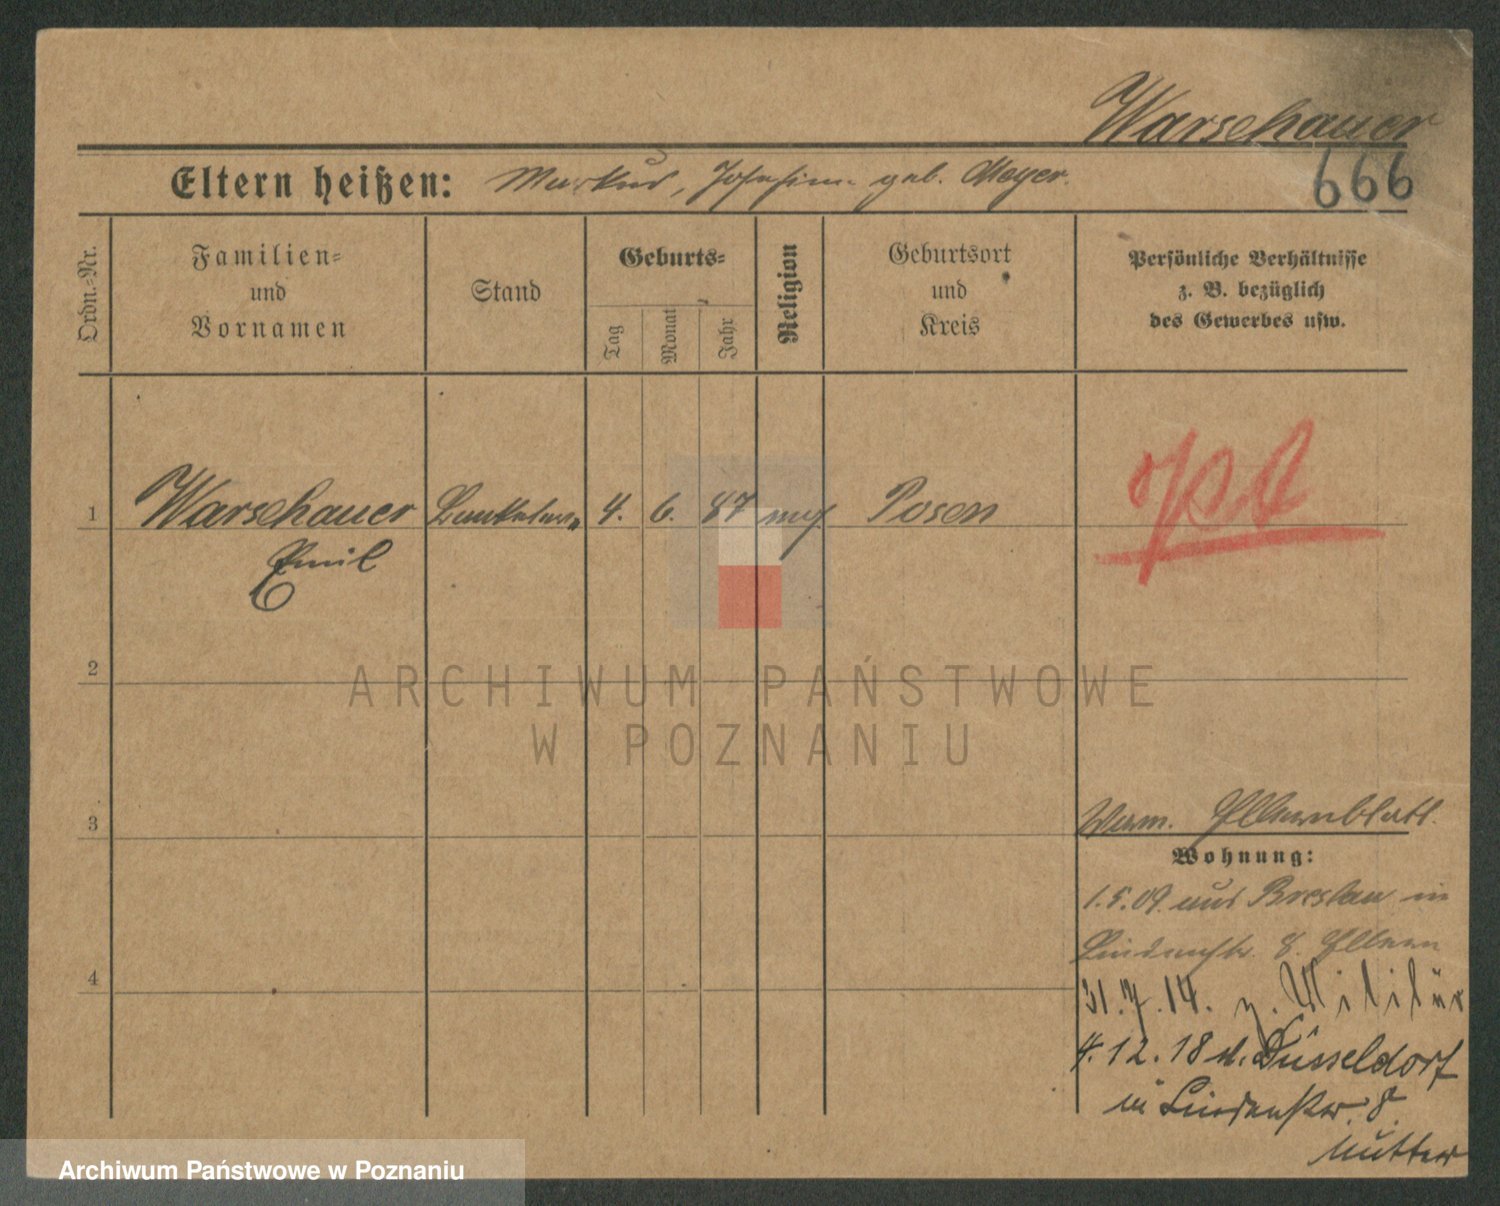 Warschauer
666
Eltern heißen: Markus, Josefine geb. Meyer.
Ordn.-Nr.
Familien-
und
Vornamen
Stand
Geburts-
Tag
Monat
Jahr
Religion
Geburtsort
und
Kreis
Persönliche Verhältnisse
z. B. bezüglich
des Gewerbes usw.
1 Warschauer 4. 6. 87 mos Posen
Emil
2
3
4
Verm. Elternblatt.
Wohnung:
1.5.09. aus Breslau in
Lindenstr. 8. Eltern
31.7.14. z. Militär
4.12.18 v. Düsseldorf
in Lindenstr. 8.
Mutter
ARCHIWUM PAŃSTWOWE
W POZNANIU
Archiwum Państwowe w Poznaniu